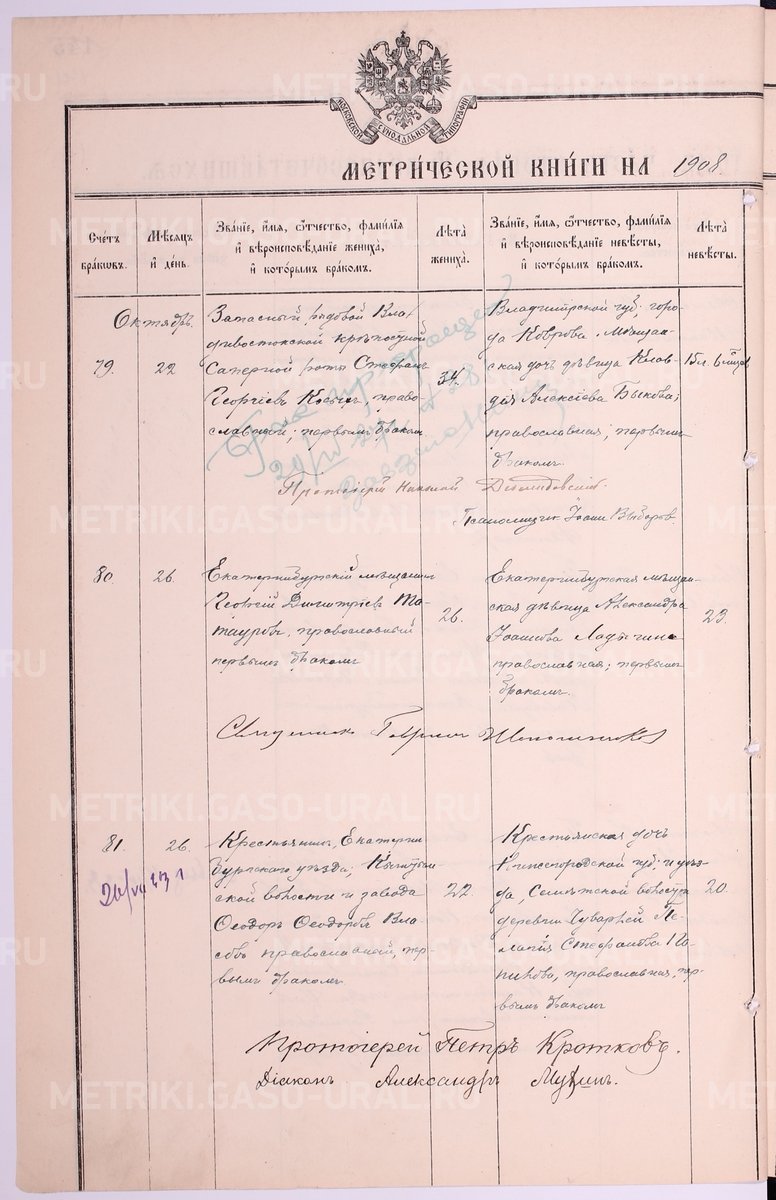 МОСКОВСКОЙ СѴНОДАЛЬНОЙ ТИПОГРАФІИ
МЕТРИ́ЧЕСКОЙ КНИ́ГИ НА 1908.
Счётъ бра́кѡвъ.
Мѣ́сѧцъ и҆ де́нь.
Зва́нїе, и҆́мѧ, ѻ҆́тчество, фами́лїѧ
и҆ вѣроисповѣ́данїе жениха̀,
и҆ кото́рымъ бра́комъ.
Лѣ́та жениха̀.
Зва́нїе, и҆́мѧ, ѻ҆́тчество, фами́лїѧ
и҆ вѣроисповѣ́данїе невѣ́сты,
и҆ кото́рымъ бра́комъ.
Лѣ́та невѣ́сты.
Октябрь.
79.
22
Запасный рядовой Вла-
дивостокской крѣпостной
Саперной роты Стефанъ
Георгіевъ, право-
славный; первымъ бракомъ
34.
Владимірской губ., горо-
да Коврова, мѣщан-
ская дочь дѣвица Клав-
дія Алексіева Быкова;
православная; первымъ
бракомъ.
15 л. 6 мѣсяцев
20/IV
Протоіерей Николай
Псаломщик Іоанн
80.
26.
Екатеринбургскій мѣщанинъ
Георгій Димитріевъ Та-
тауровъ, православный
первымъ бракомъ
26.
Екатеринбургская мѣщан-
ская дѣвица Александра
Іоаннова Ладыгина
православная; первымъ
бракомъ.
23.
Священник Гавриил
81.
26.
Крестьянинъ, Екатерин-
бургскаго уѣзда, Кыштым-
ской волости и завода
Ѳеодоръ Ѳеодоровъ Вла-
совъ православный, пер-
вымъ бракомъ.
22.
Крестьянская дочь
Нижегородской губ. и уѣз-
да, волости
деревни Пе-
лагія Стефанова По-
пкова, православная, пер-
вымъ бракомъ
20.
Протоіерей Петръ Кротковъ.
Діаконъ Александръ Мухинъ.
METRIKI.GASO-URAL.RU